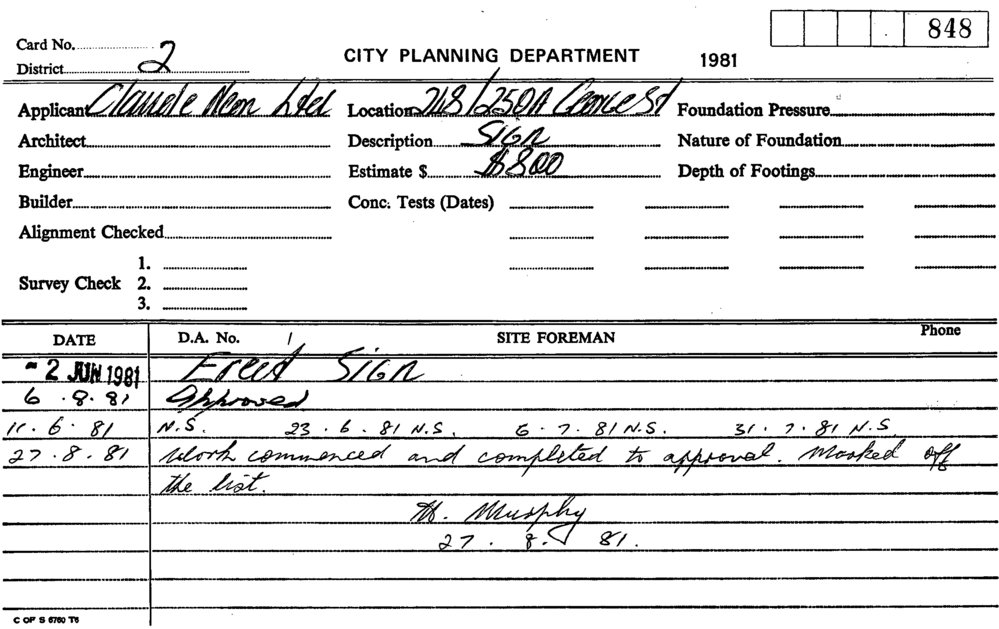 848
Card No.
District 2
CITY PLANNING DEPARTMENT 1981
Applicant Claude Neon Ltd Location 248/250A George St Foundation Pressure
Architect Description SIGN Nature of Foundation
Engineer Estimate $ $800 Depth of Footings
Builder Conc. Tests (Dates)
Alignment Checked
1.
Survey Check 2.
3.
DATE D.A. No. SITE FOREMAN Phone
- 2 JUN 1981 Erect SIGN
6 . 8 . 81 Approved
11 . 6 . 81 N.S. 23 . 6 . 81 N.S. 6 . 7 . 81 N.S. 31 . 7 . 81 N.S
27 . 8 . 81 Work commenced and completed to approval. Marked off
the list.
M. Murphy
27 . 8 . 81.
C OF S 6760 T6